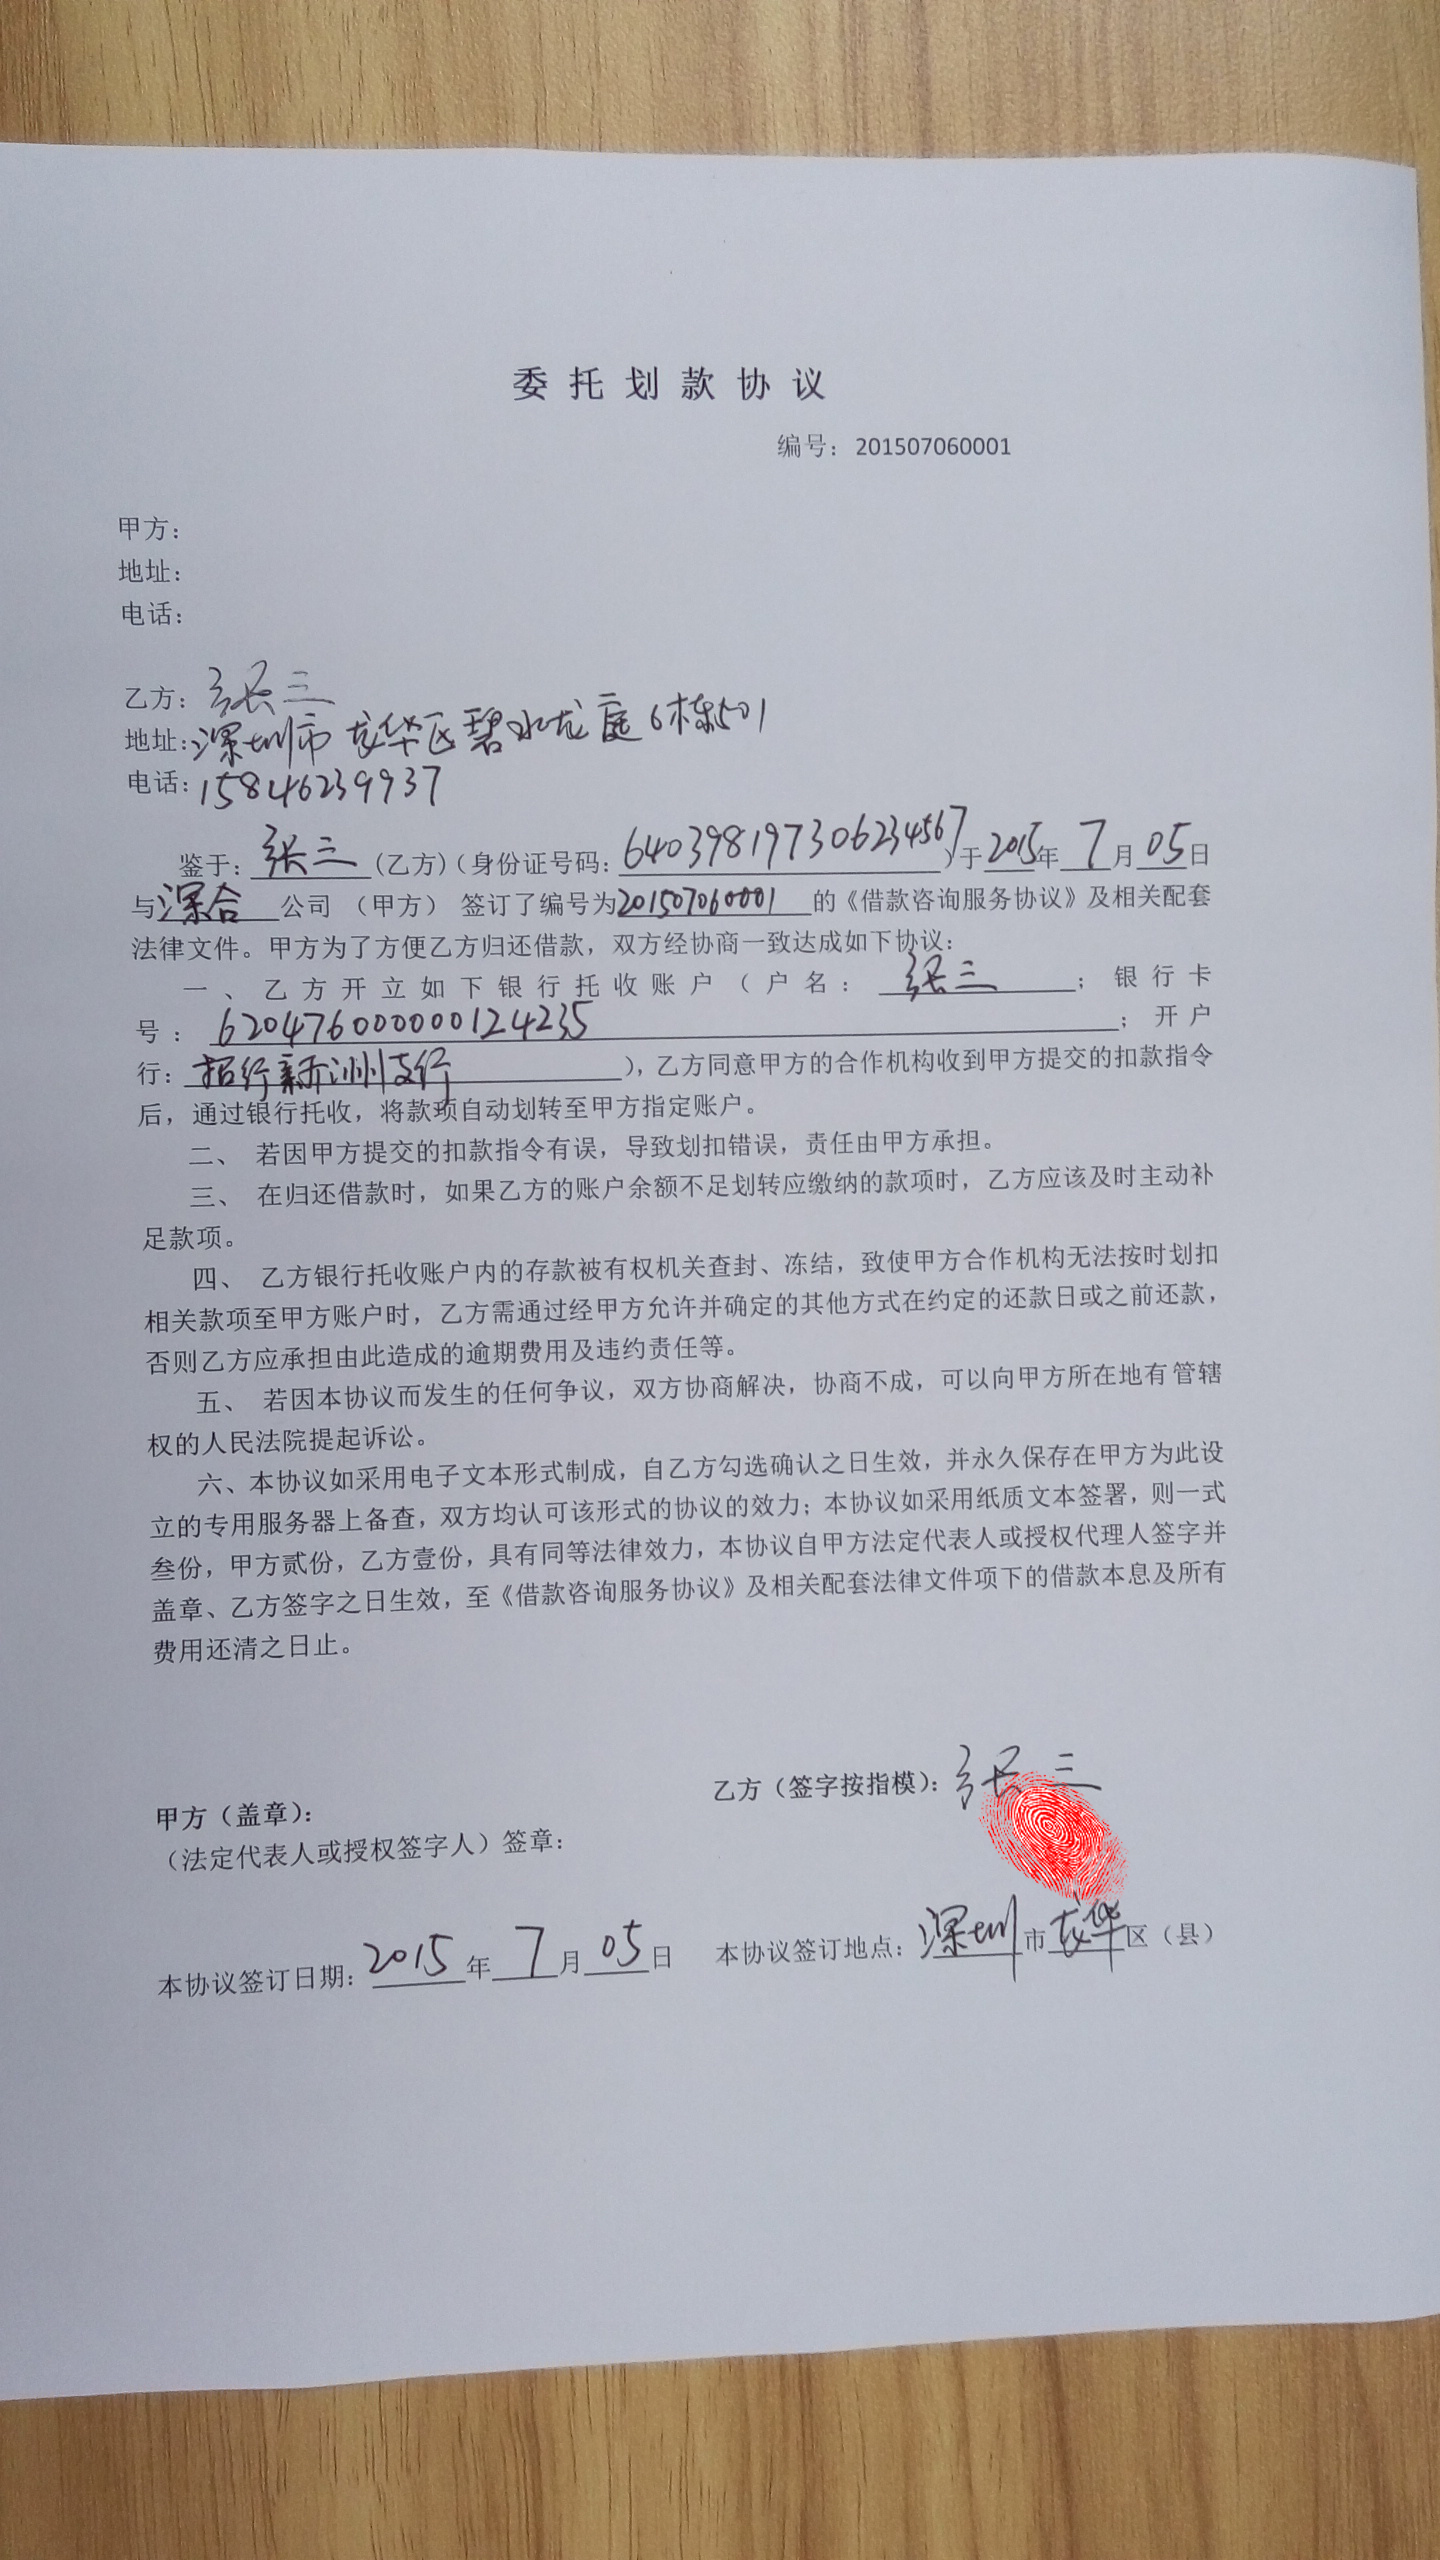 委托划款协议
编号：201507060001
甲方：
地址：
电话：
乙方：张三
地址：深圳市龙华区碧水龙庭6栋501
电话：15846239937
鉴于：张三(乙方)(身份证号码：640398197306234567)于2015年7月05日
与深合公司（甲方）签订了编号为201507060001的《借款咨询服务协议》及相关配套
法律文件。甲方为了方便乙方归还借款，双方经协商一致达成如下协议：
一、乙方开立如下银行托收账户（户名：张三；银行卡
号：6204760000000124235；开户
行：招行新洲支行），乙方同意甲方的合作机构收到甲方提交的扣款指令
后，通过银行托收，将款项自动划转至甲方指定账户。
二、 若因甲方提交的扣款指令有误，导致划扣错误，责任由甲方承担。
三、 在归还借款时，如果乙方的账户余额不足划转应缴纳的款项时，乙方应该及时主动补
足款项。
四、 乙方银行托收账户内的存款被有权机关查封、冻结，致使甲方合作机构无法按时划扣
相关款项至甲方账户时，乙方需通过经甲方允许并确定的其他方式在约定的还款日或之前还款，
否则乙方应承担由此造成的逾期费用及违约责任等。
五、 若因本协议而发生的任何争议，双方协商解决，协商不成，可以向甲方所在地有管辖
权的人民法院提起诉讼。
六、本协议如采用电子文本形式制成，自乙方勾选确认之日生效，并永久保存在甲方为此设
立的专用服务器上备查，双方均认可该形式的协议的效力；本协议如采用纸质文本签署，则一式
叁份，甲方贰份，乙方壹份，具有同等法律效力，本协议自甲方法定代表人或授权代理人签字并
盖章、乙方签字之日生效，至《借款咨询服务协议》及相关配套法律文件项下的借款本息及所有
费用还清之日止。
乙方（签字按指模）：张三
甲方（盖章）：
（法定代表人或授权签字人）签章：
本协议签订日期：2015年7月05日 本协议签订地点：深圳市龙华区（县）